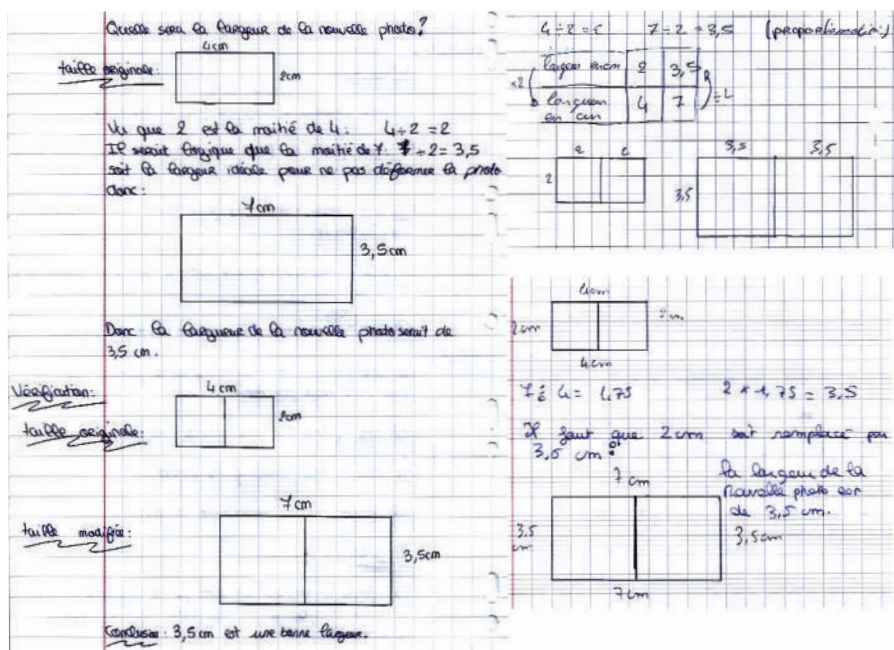 Quelle sera la largeur de la nouvelle photo?
4cm
taille originale:
2cm
Vu que 2 est la moitié de 4: 4÷2=2
Il serait logique que la moitié de 7: 7÷2=3,5
soit la largeur idéale pour ne pas déformer la photo
donc:
7cm
3,5cm
Donc la largueur de la nouvelle photo serait de
3,5 cm.
Vérification:
4cm
taille originale:
2cm
7cm
taille modifiée:
3,5cm
Conclusion: 3,5 cm est une bonne largeur.
4÷2=2 7÷2=3,5
largeur en cm 2 3,5
×2
longueur en cm 4 7
2
3,5 3,5
3,5
4cm
2cm
4cm
7÷4=1,75 2×1,75=3,5
Il faut que 2cm soit remplacé par
3,5 cm
7 cm
la largeur de la
nouvelle photo est
de 3,5 cm.
3,5
cm
3,5cm
7cm